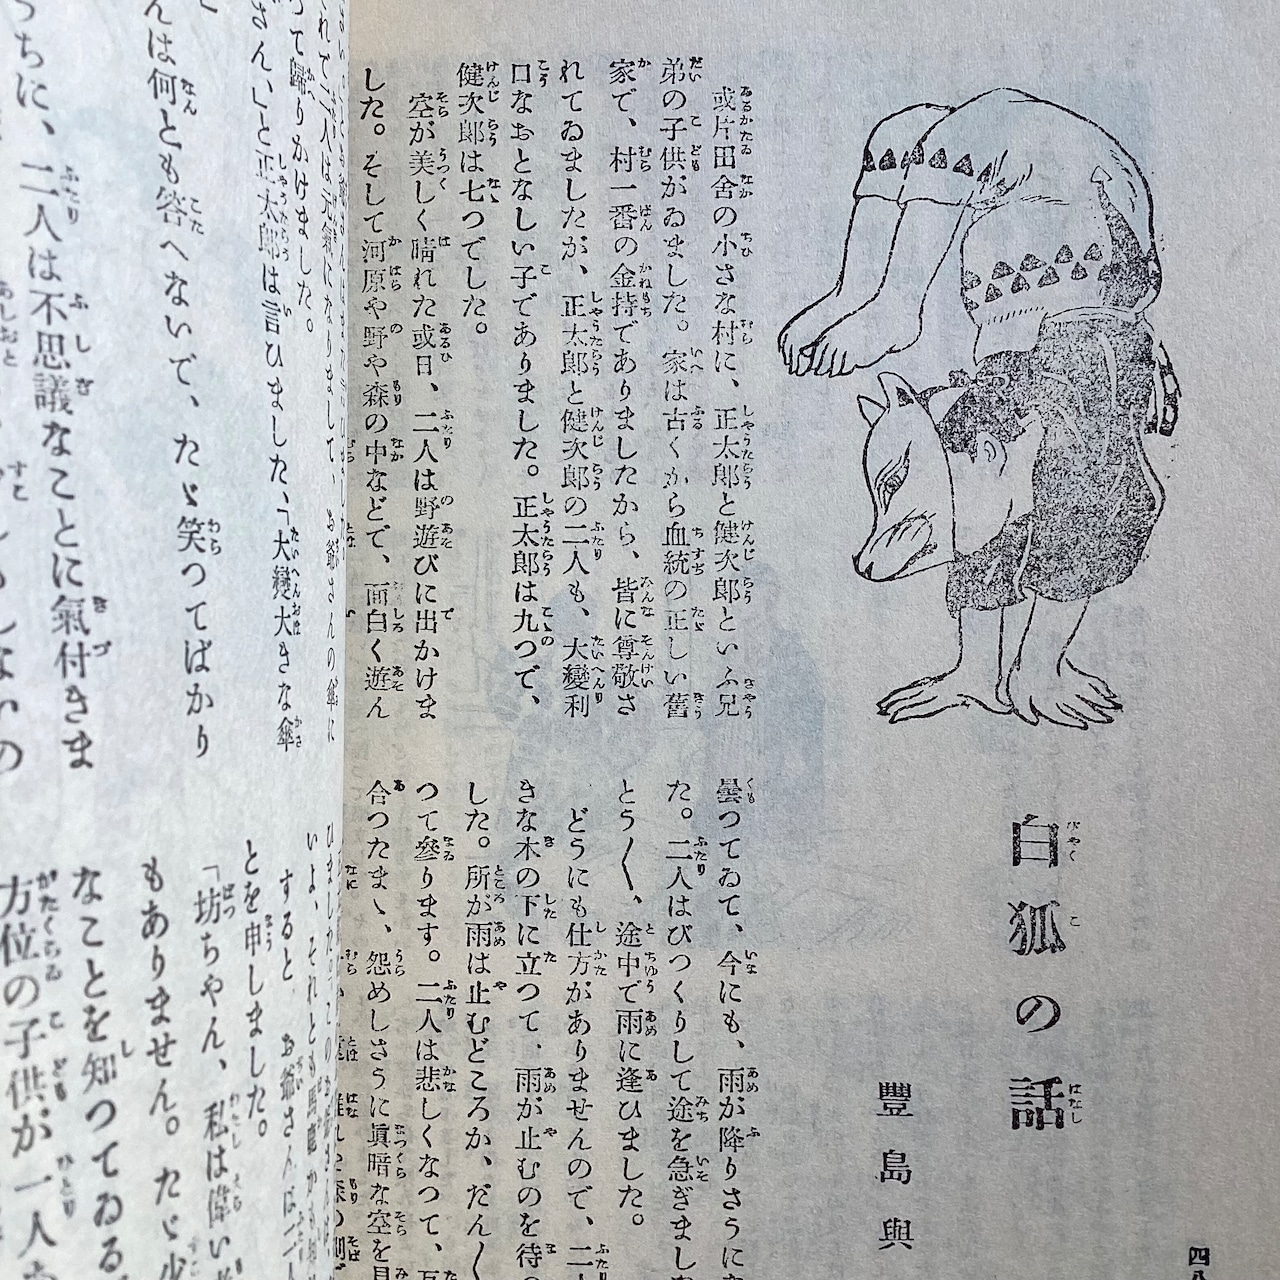 白狐の話
豐島與
或片田舍の小さな村に、正太郎と健次郎といふ兄
弟の子供がゐました。家は古くから血統の正しい舊
家で、村一番の金持でありましたから、皆に尊敬さ
れてゐましたが、正太郎と健次郎の二人も、大變利
口なおとなしい子でありました。正太郎は九つで、
健次郎は七つでした。
空が美しく晴れた或日、二人は野遊びに出かけま
した。そして河原や野や森の中などで、面白く遊ん
曇つてゐて、今にも、雨が降りさうに
た。二人はびつくりして途を急ぎまし
とう〱、途中で雨に逢ひました。
どうにも仕方がありませんので、二
きな木の下に立つて、雨が止むのを待
した。所が雨は止むどころか、だん〱
つて參ります。二人は悲しくなつて、
合つたまゝ、怨めしさうに眞暗な空を
れて二人は元氣になりまして、お爺さんの傘に
つて歸りかけました。
さん、」と正太郎は言ひました、「大變大きな傘
んは何とも答へないで、たゞ笑つてばかり
ちに、二人は不思議なことに氣付きま
いよ、それとも
すると お爺さんは
とを申しました。
「坊ちやん、私は偉い
もありません。たゞ少
なことを知つてゐる
方位の子供が一人
四八